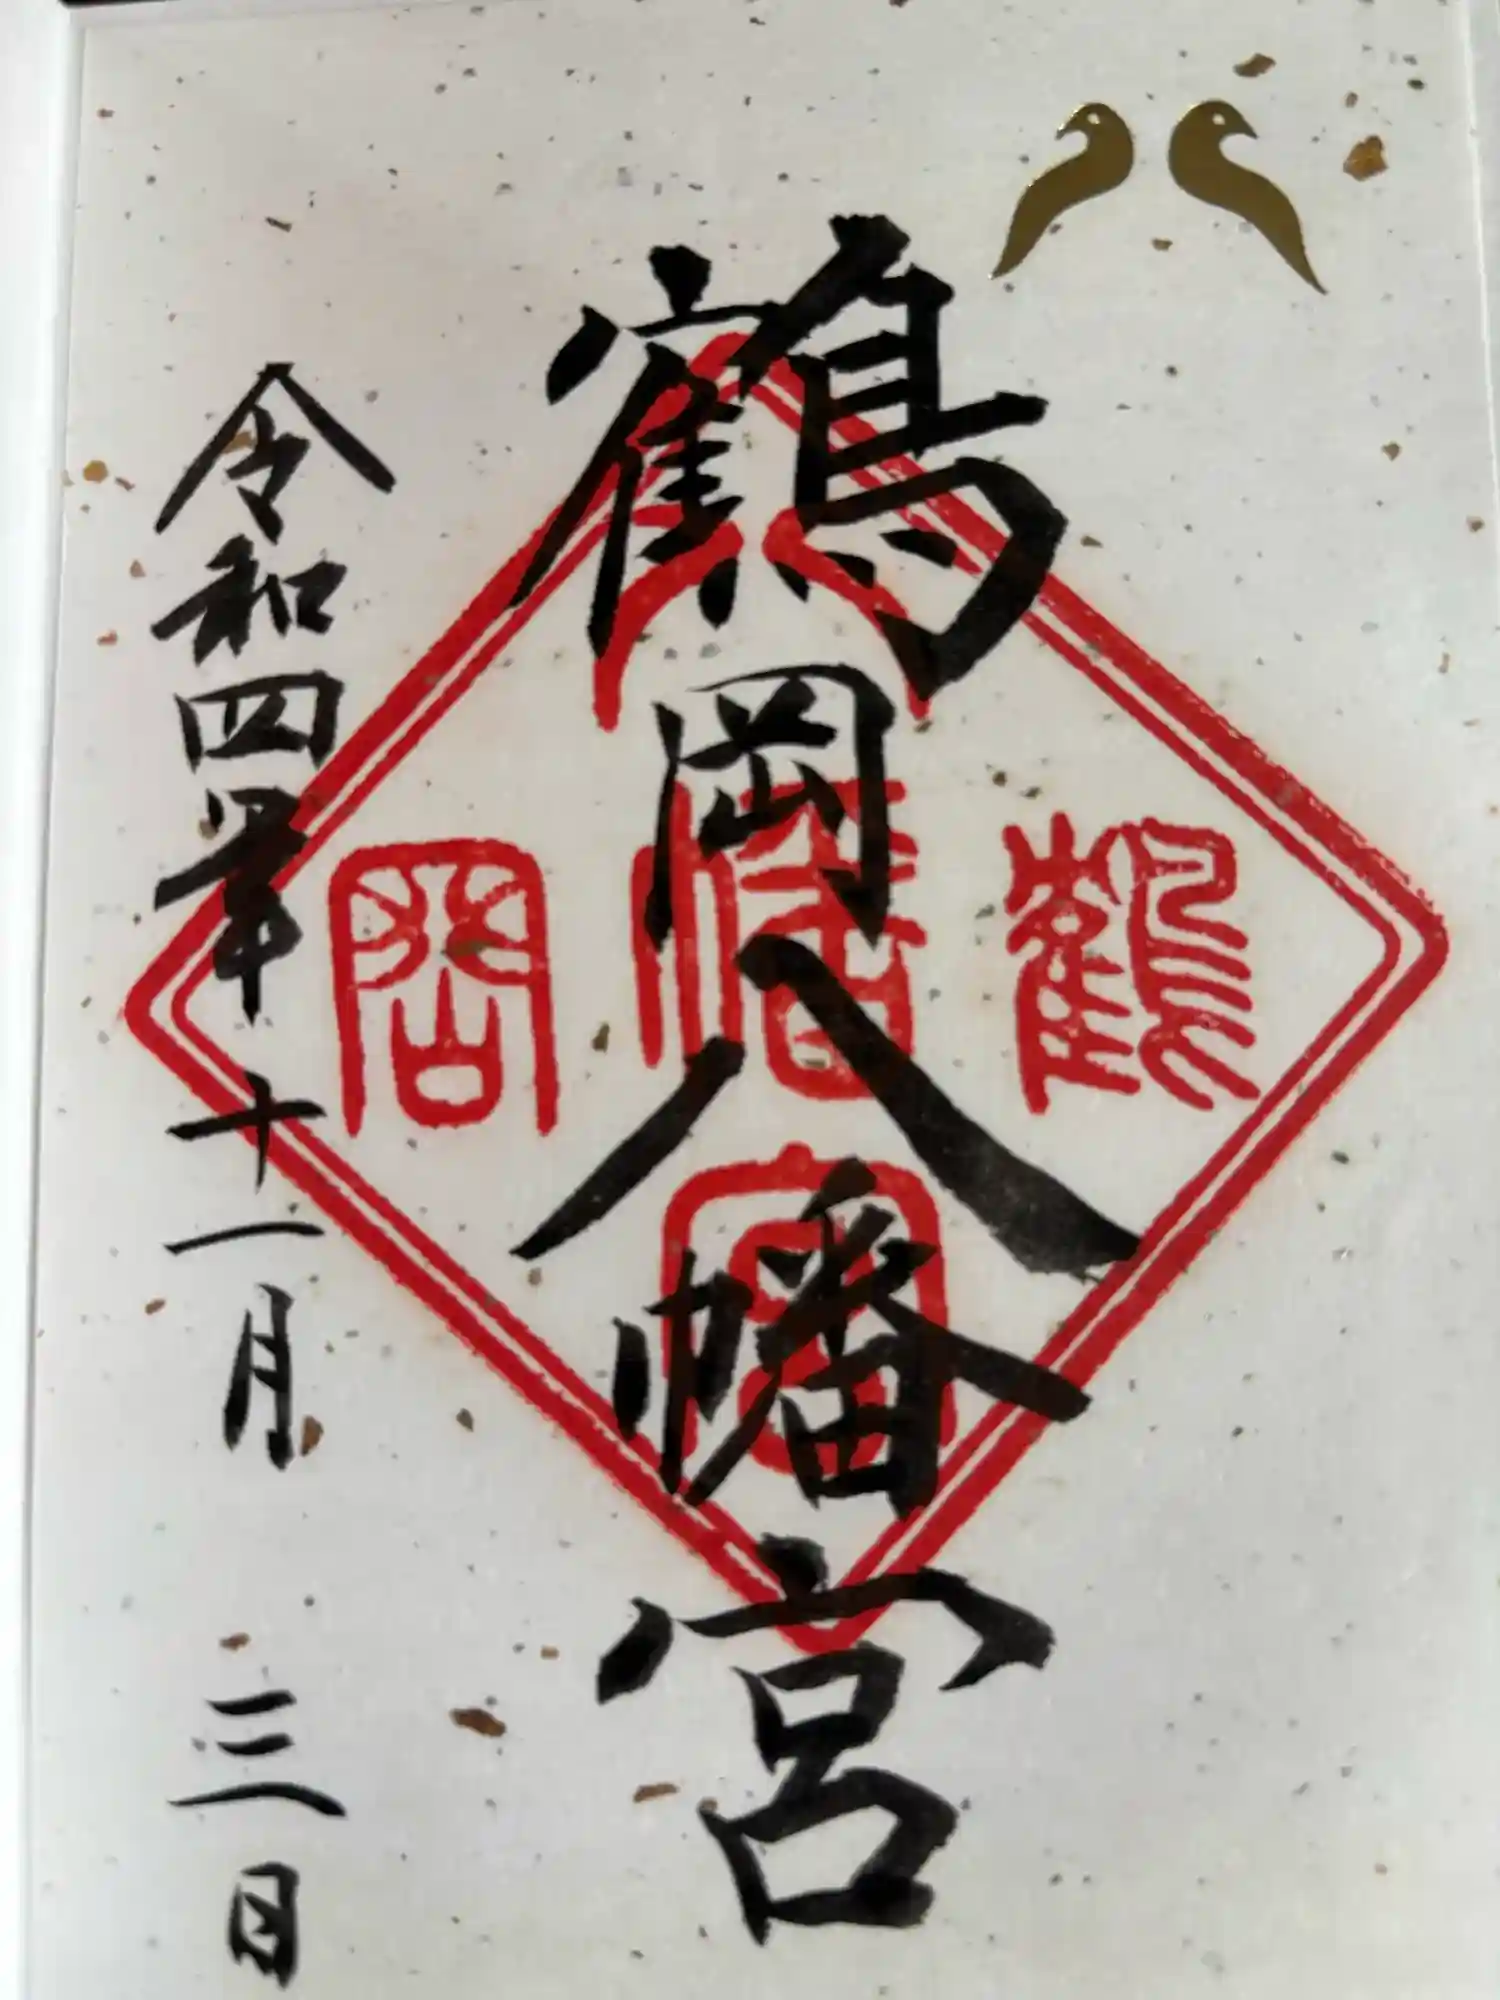 鶴岡八幡宮
鶴
岡
八
幡
宮
令和四年十一月三日